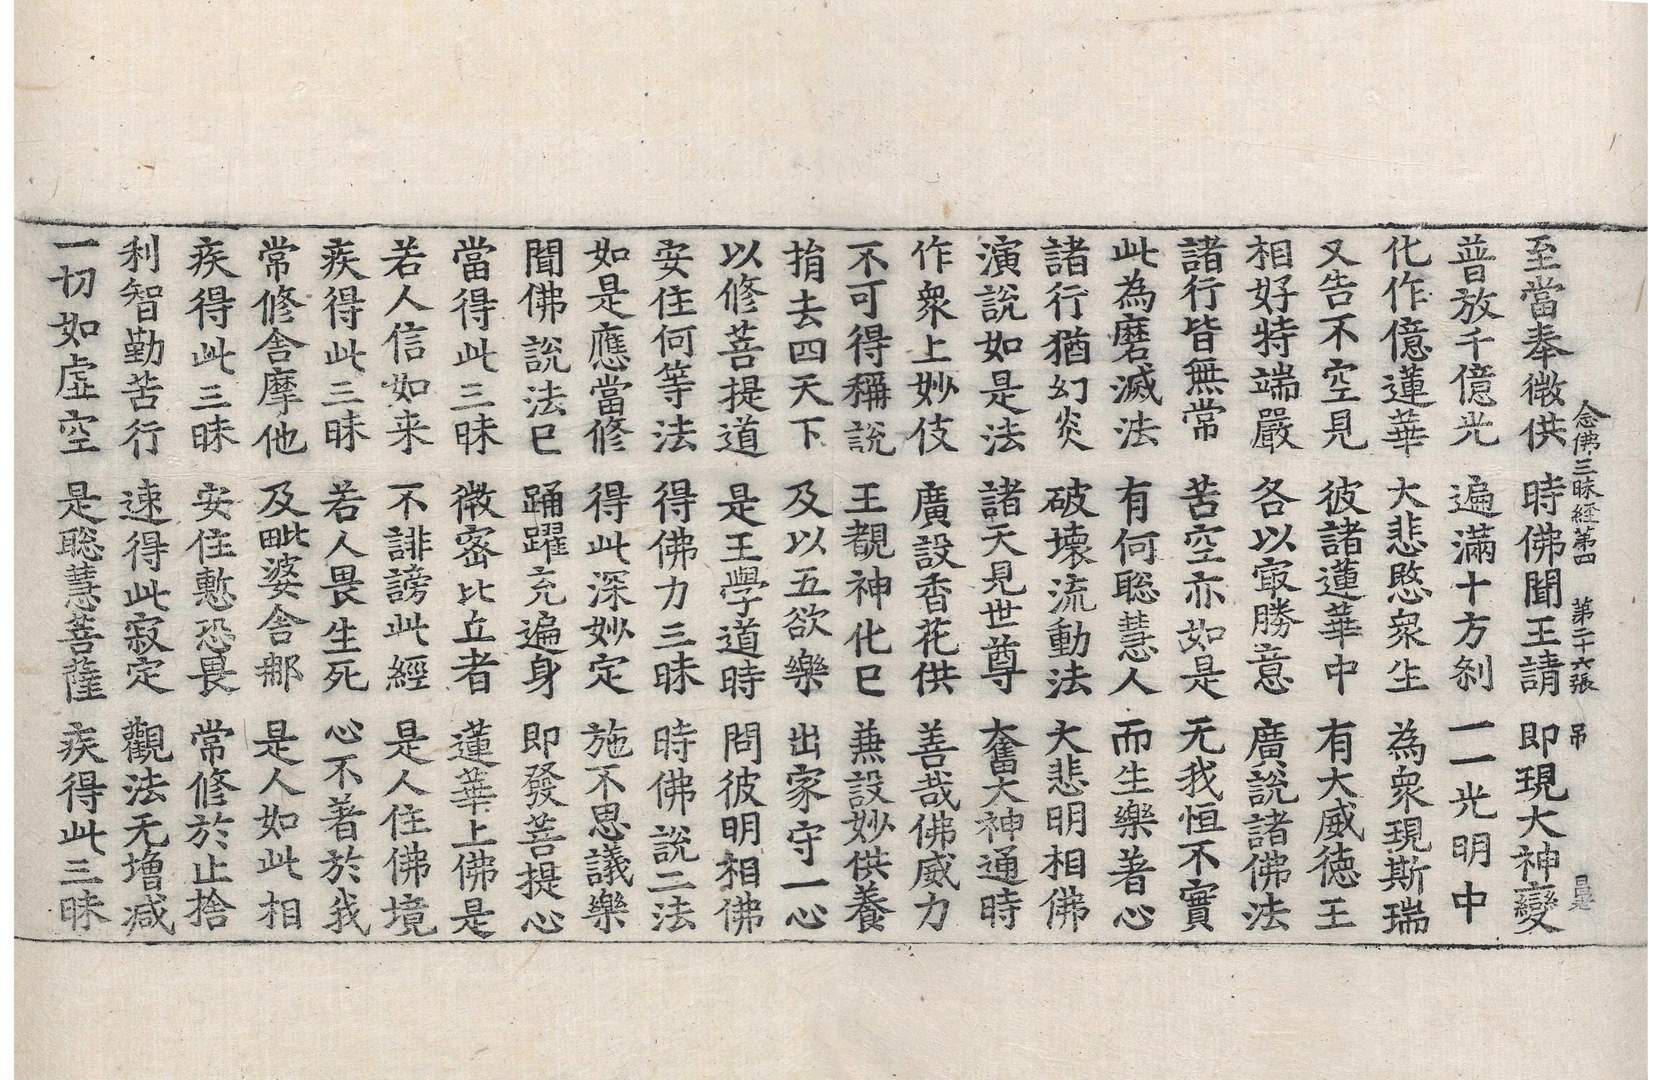 念佛三昧經第四　第二十六張　吊　是
至當奉微供　時佛聞王請　即現大神變
普放千億光　遍滿十方刹　一一光明中
化作億蓮華　大悲愍衆生　為衆現斯瑞
又告不空見　彼諸蓮華中　有大威德王
相好特端嚴　各以㝡勝意　廣說諸佛法
諸行皆無常　苦空亦如是　无我恒不實
此為磨滅法　有何聡慧人　而生樂著心
諸行猶幻炎　破壞流動法　大悲明相佛
演說如是法　諸天見世尊　奮大神通時
作衆上妙伎　廣設香花供　善哉佛威力
不可得稱說　王覩神化已　兼設妙供養
捐去四天下　及以五欲樂　出家守一心
以修菩提道　是王學道時　問彼明相佛
安住何等法　得佛力三昧　時佛說二法
如是應當修　得此深妙定　施不思議樂
聞佛說法已　踊躍充遍身　即發菩提心
當得此三昧　微密比丘者　蓮華上佛是
若人信如来　不誹謗此經　是人住佛境
疾得此三昧　若人畏生死　心不著於我
常修舍摩他　及毗婆舍那　是人如此相
疾得此三昧　安住慙恐畏　常修於止捨
利智勤苦行　速得此寂定　觀法无增减
一切如虛空　是聡慧菩薩　疾得此三昧